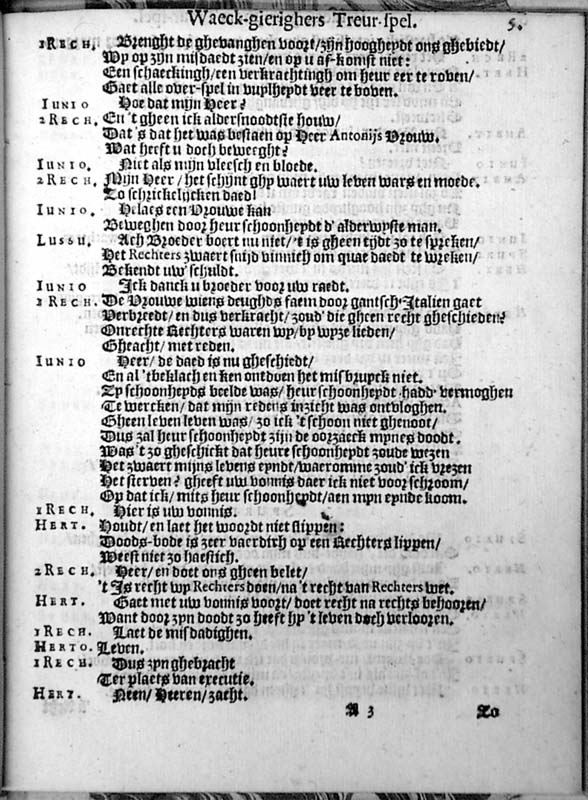 Waeck-gierighers Treur-spel. 5.
1RECH. Brenght de ghevanghen voort/zijn hoogheydt ons ghebiedt/
Wy op zijn misdaedt zien/en op u af-komst niet:
Een schaeckingh/een verkrachtingh om heur eer te roven/
Gaet alle over-spel in vuylheydt veer te boven.
IUNIO Hoe dat mijn Heer?
2RECH. En 't gheen ick aldersnoodtste houw/
Dat's dat het was bestaen op Heer Antonijs Vrouw.
Wat heeft u doch beweeght?
IUNIO. Niet als mijn vleesch en bloede.
2RECH. Mijn Heer/het schijnt ghy waert uw leven wars en moede.
To schrickelijcken daed!
IUNIO. Helaes een Vrouwe kan
Beweghen door heur schoonheydt d'alderwyste man.
LUSSU. Ach Broeder boert nu niet/'t is gheen tijdt zo te spreken/
Het Rechters zwaert snijd vinnich om quat daedt te wreken/
Bekendt uw' schuldt.
IUNIO Ick danck u broeder voor uw raedt.
2RECH. De Vrouwe wiens deughds faem door gantsch-Italien gaet
Verbreedt/en dus verkracht/zoud' die gheen recht gheschieden?
Onrechte Rechters waren wy/by wyze lieden/
Gheacht/met reden.
IUNIO Heer/de daed is nu gheschiedt/
En al 'tbeklach en ken ontdoen het misbruyck niet.
Zy schoonheyds beelde was/heur schoonheydt hadd' vermoghen
Te wercken/dat mijn redens inzicht was ontvloghen.
Gheen leven leven was/zo ick 't schoon niet ghenoot/
Dus zal heur schoonheydt zijn de oorzaeck mynes doodt.
Was't zo gheschikt dat heure schoonheydt zoude wezen
Het zwaert mijns levens eyndt/waeromme zoud' ick vrezen
Het sterven? gheeft uw vonnis daer ick niet voor schroom/
Op dat ick/mits heur schoonheydt/aen myn eynde koom.
1RECH. Hier is uw vonnis.
HERT. Houdt/en laet het woordt niet slippen:
Doods-bode is zeer vaerdirh op een Rechters lippen/
Weest niet zo haestich.
2RECH. Heer/en doet ons gheen belet/
't Is recht wy Rechters doen/na't recht van Rechters wet.
HERT. Gaet met uw vonnis voort/doet recht na rechts behooren/
Want door zyn doodt zo heeft hy 't leven doch verlooren.
1RECH. Laet de misdadighen.
HERTO. Leven.
1RECH. Dus zyn ghebracht
Ter plaets van executie.
HERT. Neen/Heeren/zacht.
A 3 Zo